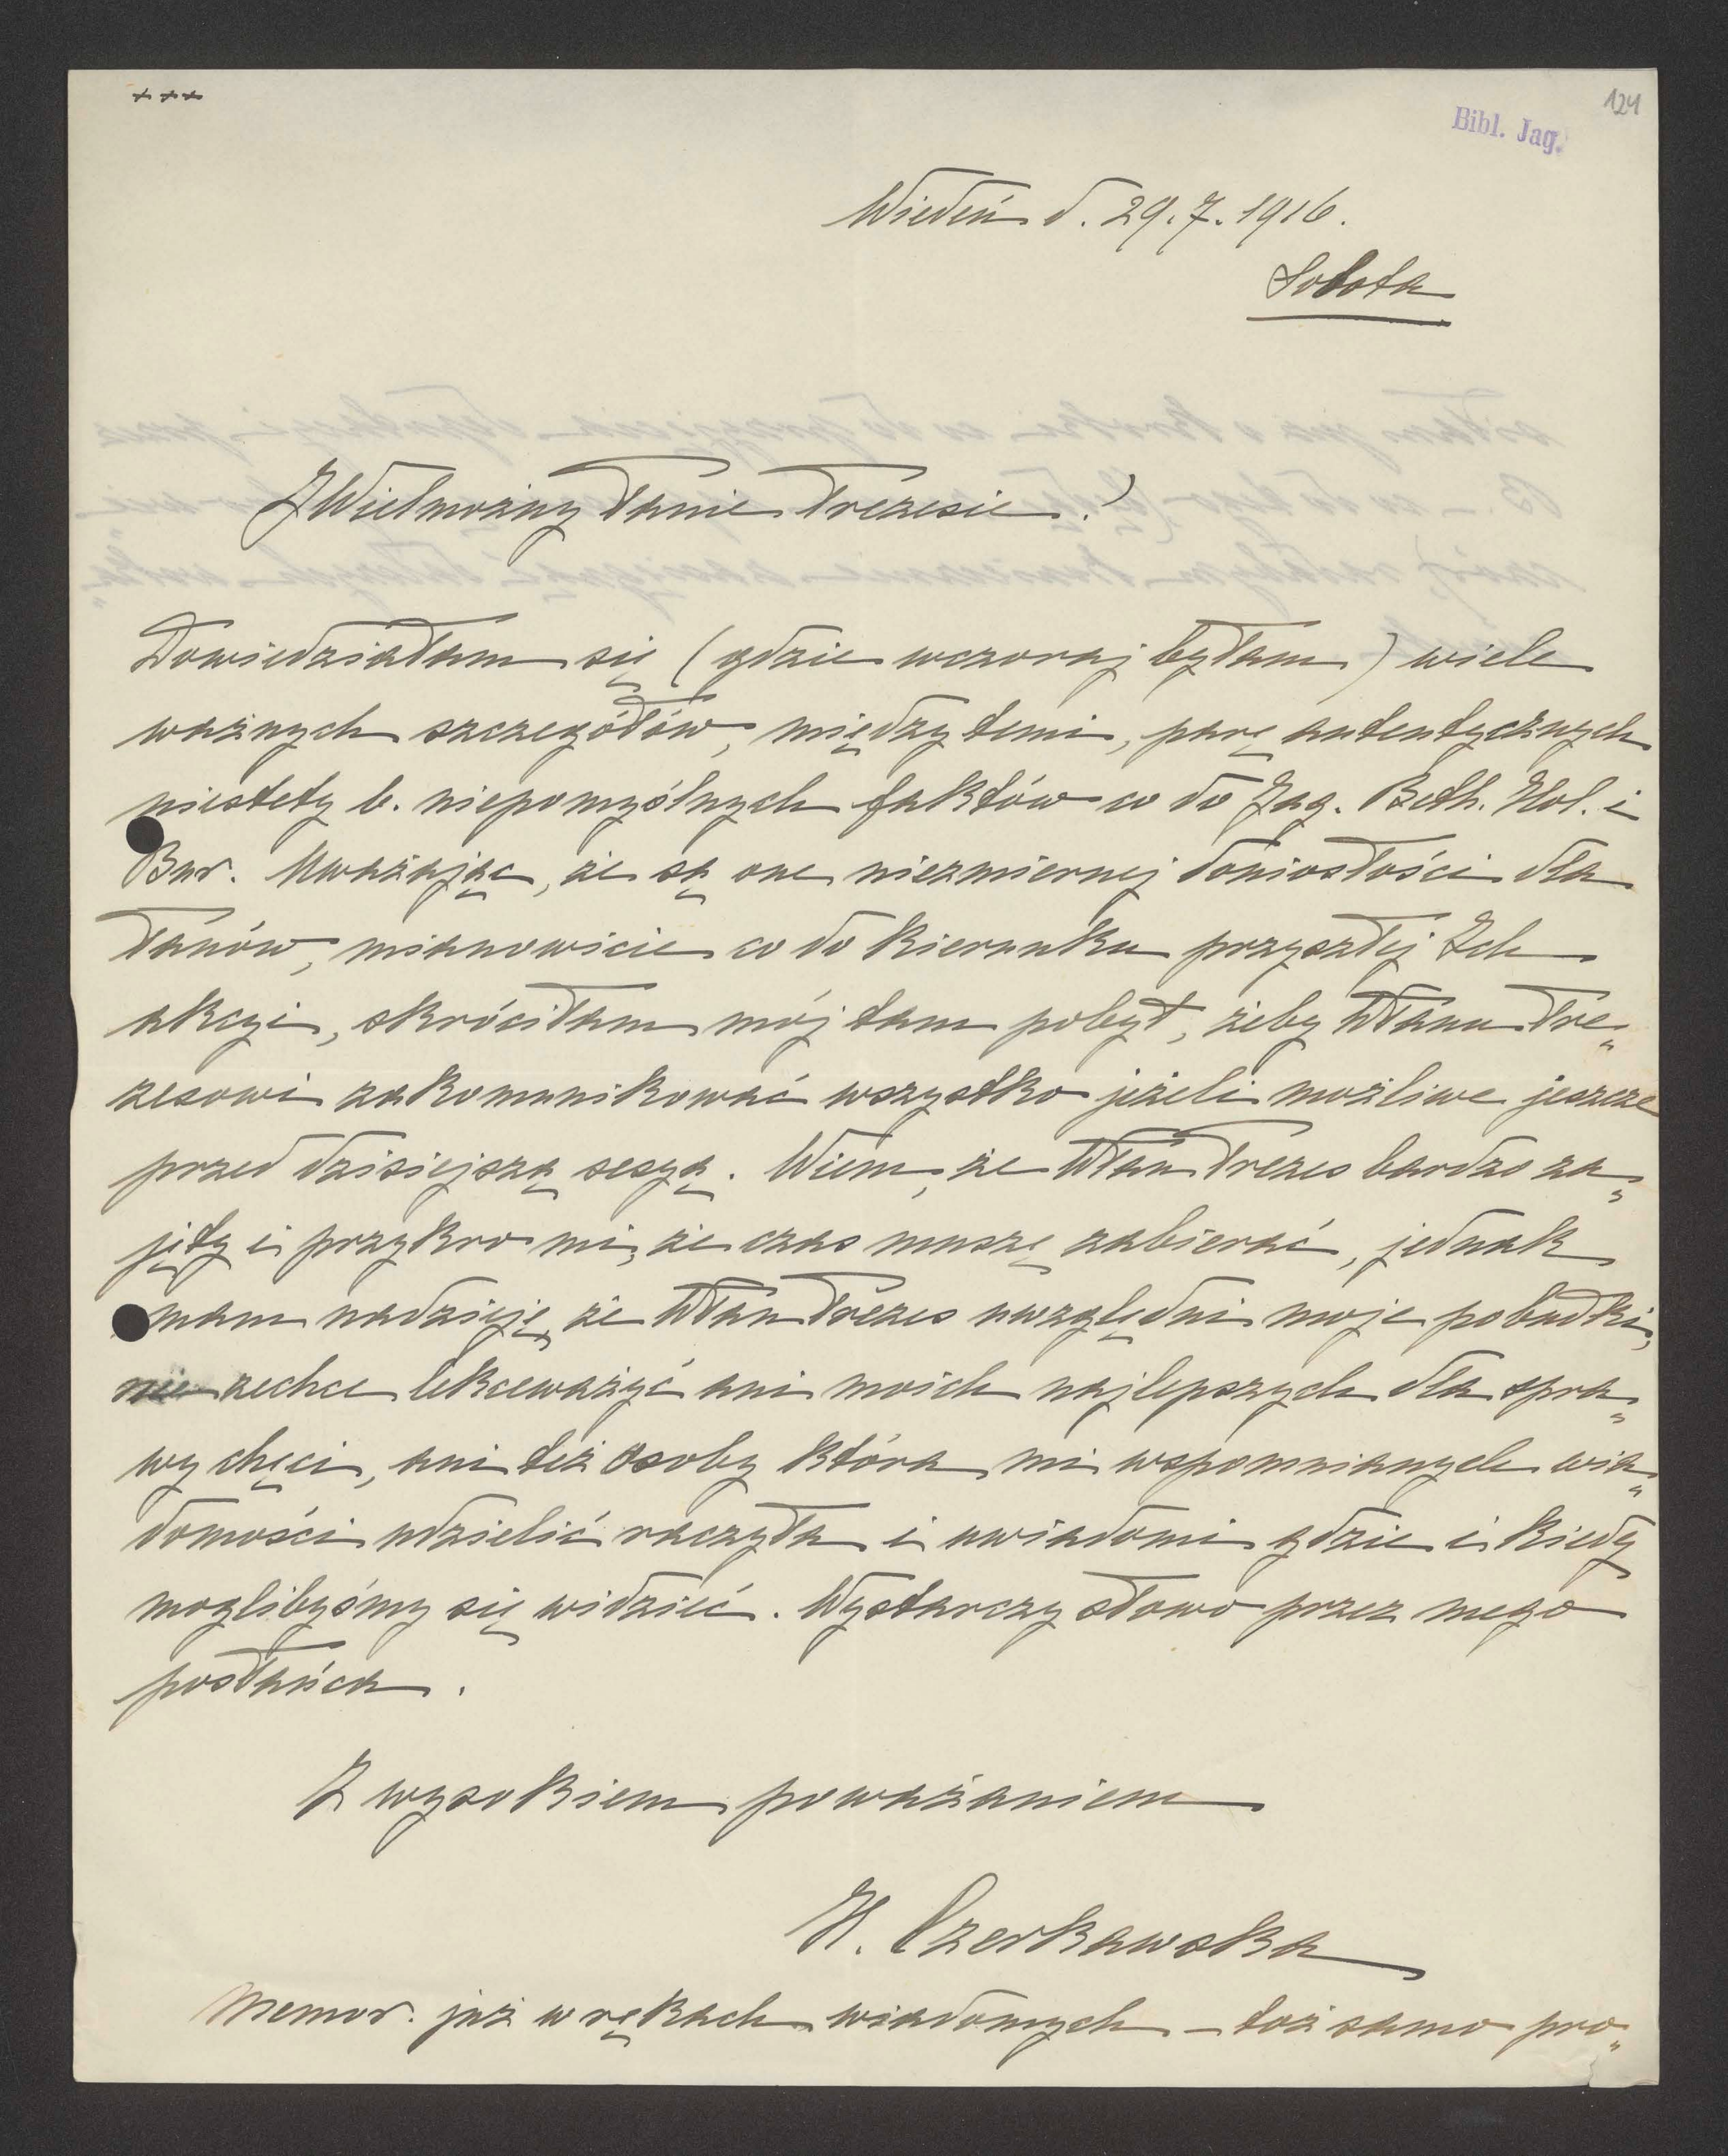 +++
124
Bibl. Jag.
Wiedeń d. 29.7.1916.
Sobota
JWielmożny Panie Prezesie!
Dowiedziałam się (gdzie wczoraj byłam) wiele
ważnych szczegółów, między temi, parę autentycznych
niestety b. niepomyślnych faktów co do Jag. Beth. Hol. i
Bur. Uważając, że są one niezmiernej doniosłości dla
Panów, mianowicie co do kierunku przyszłej Ich
akcyi, skróciłam mój tam pobyt, żeby WPanu Pre„
zesowi zakomunikować wszystko jeżeli możliwe jeszcze
przed dzisiejszą sesyą. Wiem, że WPan Prezes bardzo za„
jęty i przykro mi, że czas muszę zabierać, jednak
mam nadzieję, że WPan Prezes uwzględni moje pobudki,
nie zechce lekceważyć ani moich najlepszych dla spra„
wy chęci, ani też osoby która mi wspomnianych wia„
domości udzielić raczyła i uwiadomi gdzie i kiedy
moglibyśmy się widzieć. Wystarczy słowo przez mego
posłańca.
Z wysokiem poważaniem
H. Czerkawska
Memor. już w rękach wiadomych – toż samo pro„